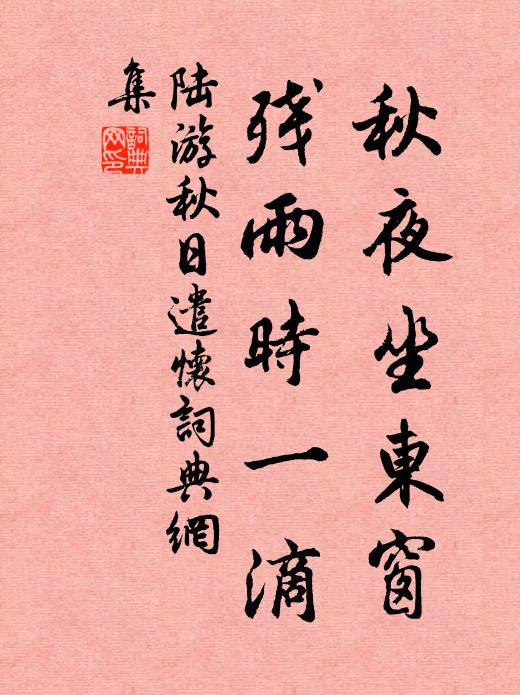 秋夜坐東窗
残雨時一滴
陆游秋日遣懷詞典網
集
詞典網印